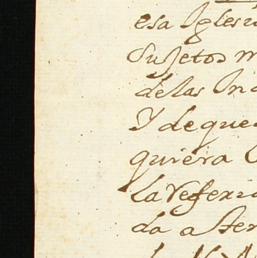 esa Iglesi
Sujetos m
de las In
Y de que
quiera
la refexi
da a